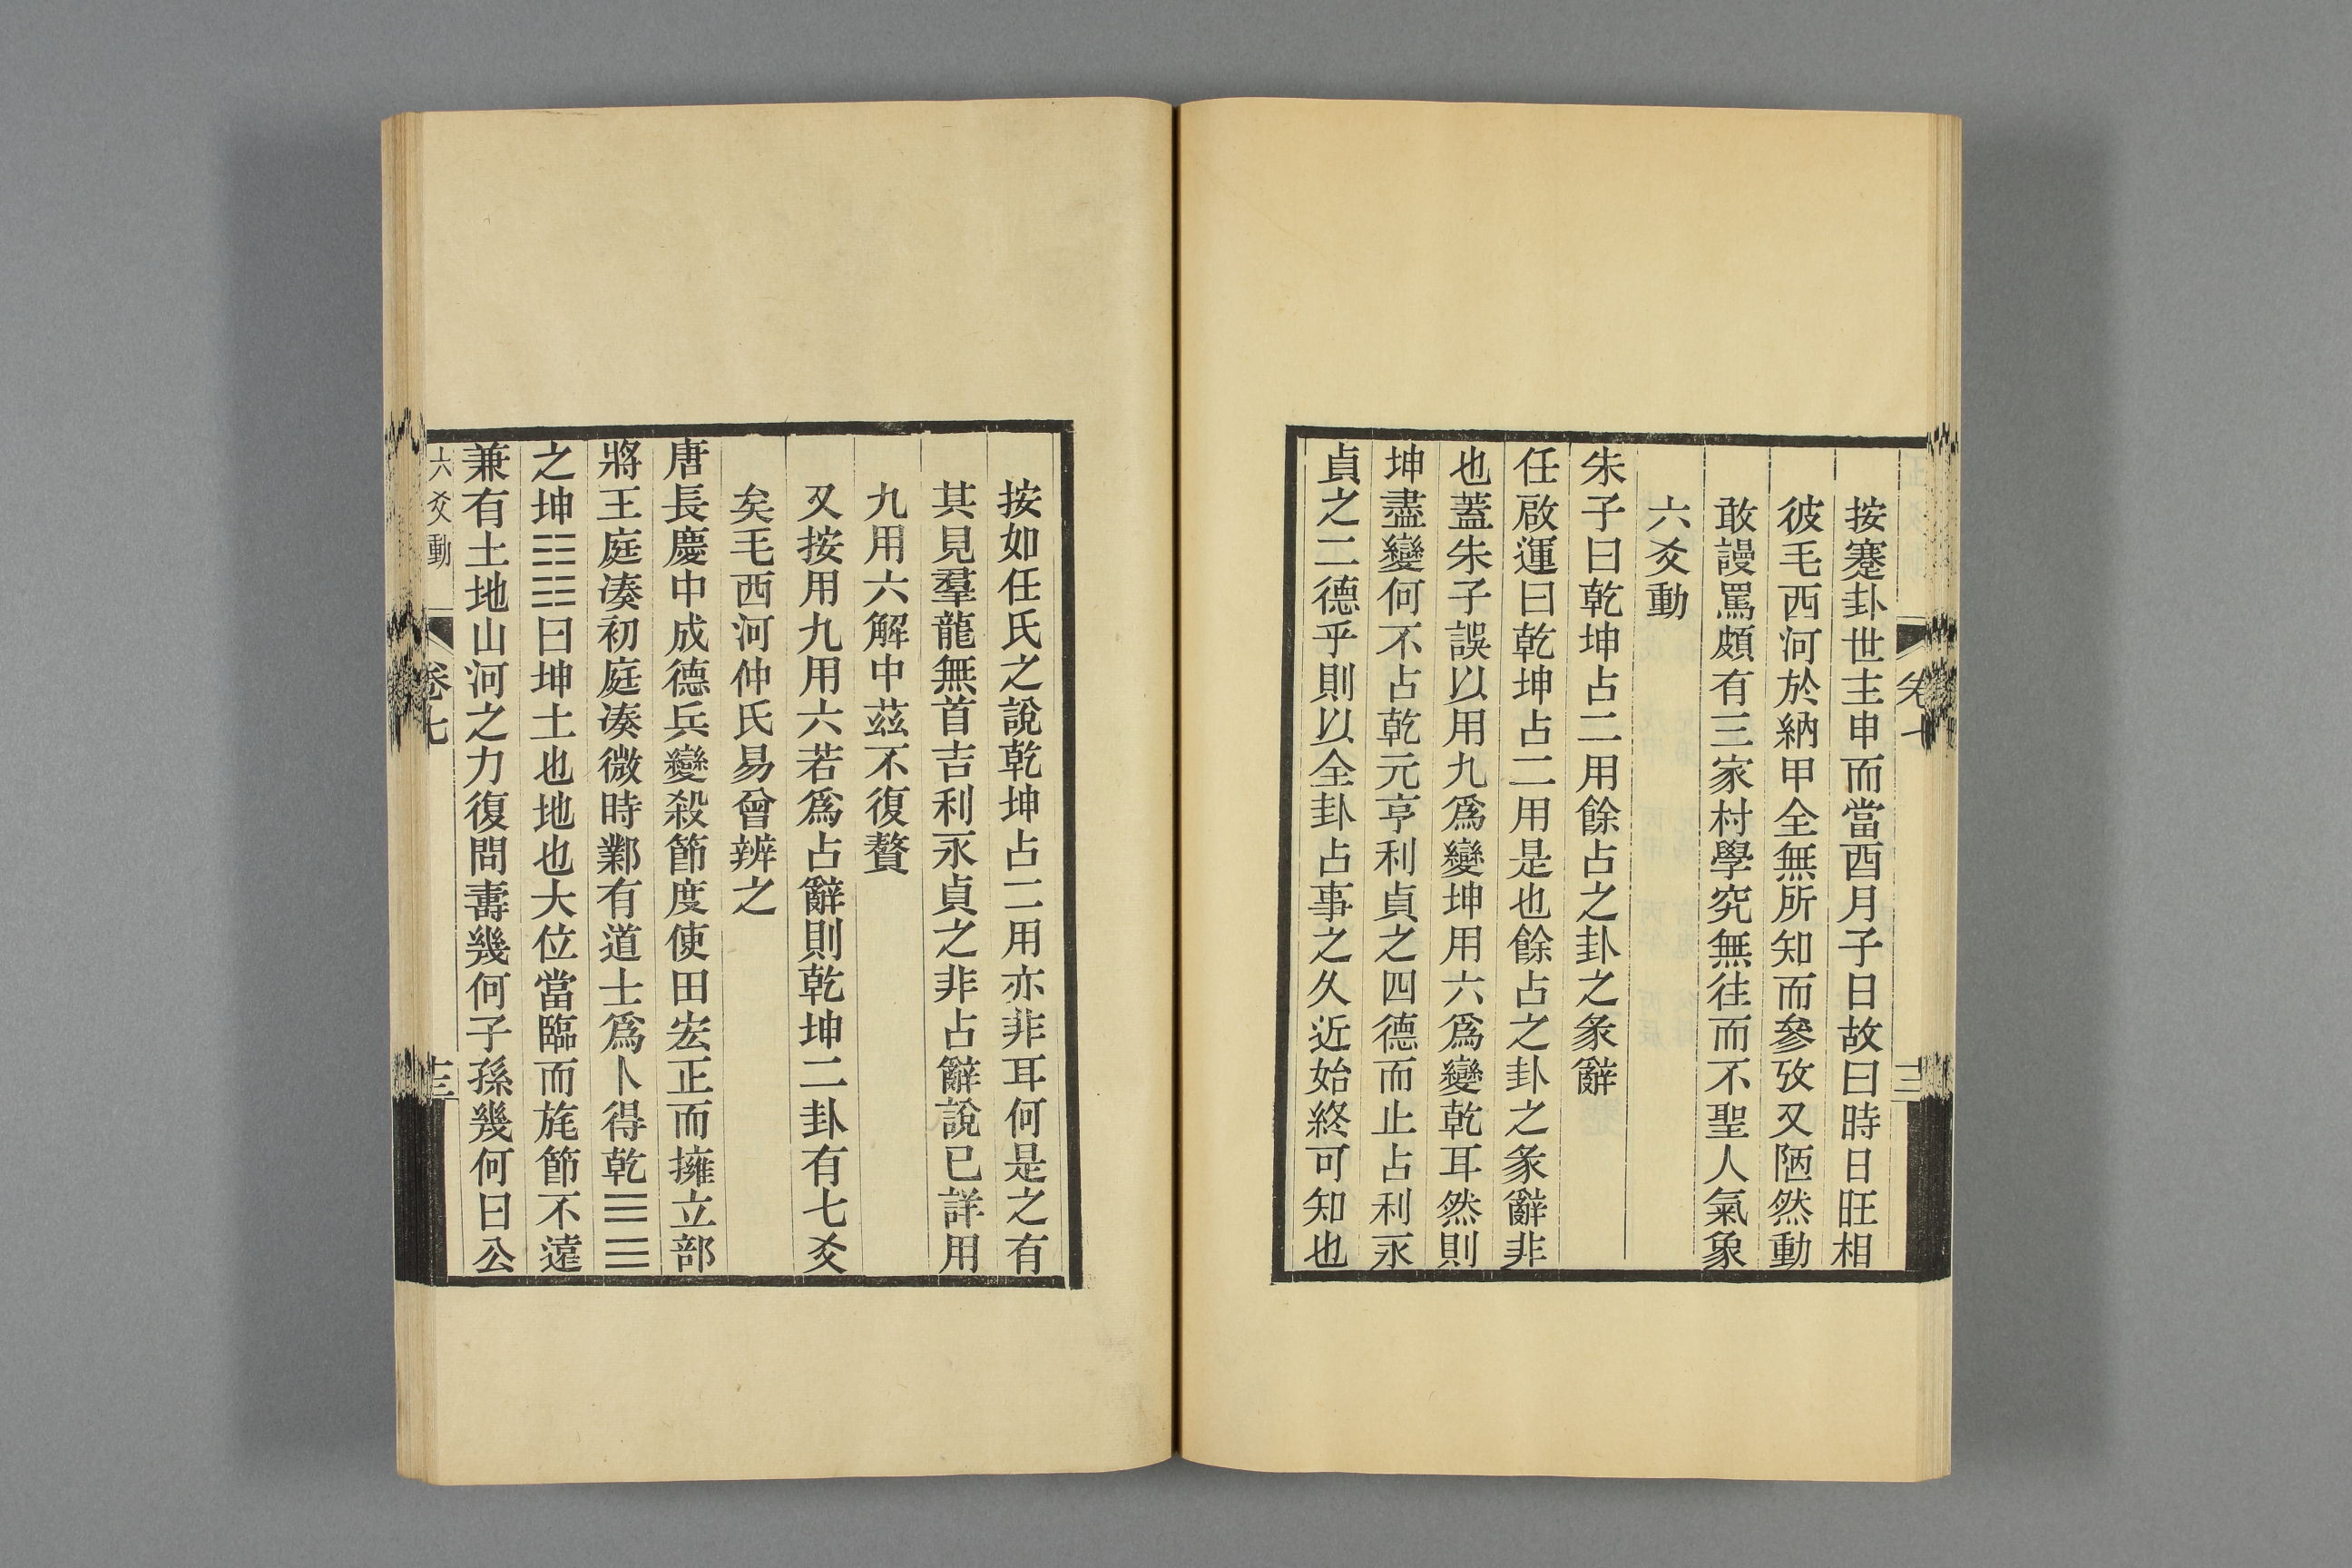 按蹇卦世主申而當酉月子日故曰時日旺相
彼毛西河於納甲全無所知而參攷又陋然動
敢謾罵頗有三家村學究無往而不聖人氣象
六爻動
朱子曰乾坤占二用餘占之卦之彖辭
任啟運曰乾坤占二用是也餘占之卦之彖辭非
也蓋朱子誤以用九爲變坤用六爲變乾耳然則
坤盡變何不占乾元亨利貞之四德而止占利永
貞之二德乎則以全卦占事之久近始終可知也
按如任氏之說乾坤占二用亦非耳何是之有
其見羣龍無首吉利永貞之非占辭說已詳用
九用六解中茲不復贅
又按用九用六若爲占辭則乾坤二卦有七爻
矣毛西河仲氏易曾辨之
唐長慶中成德兵變殺節度使田宏正而擁立部
將王庭湊初庭湊微時鄴有道士爲卜得乾☰☰
之坤☷☷曰坤土也地也大位當臨而旄節不遠
兼有土地山河之力復問壽幾何子孫幾何曰公
六爻動
卷七
十三